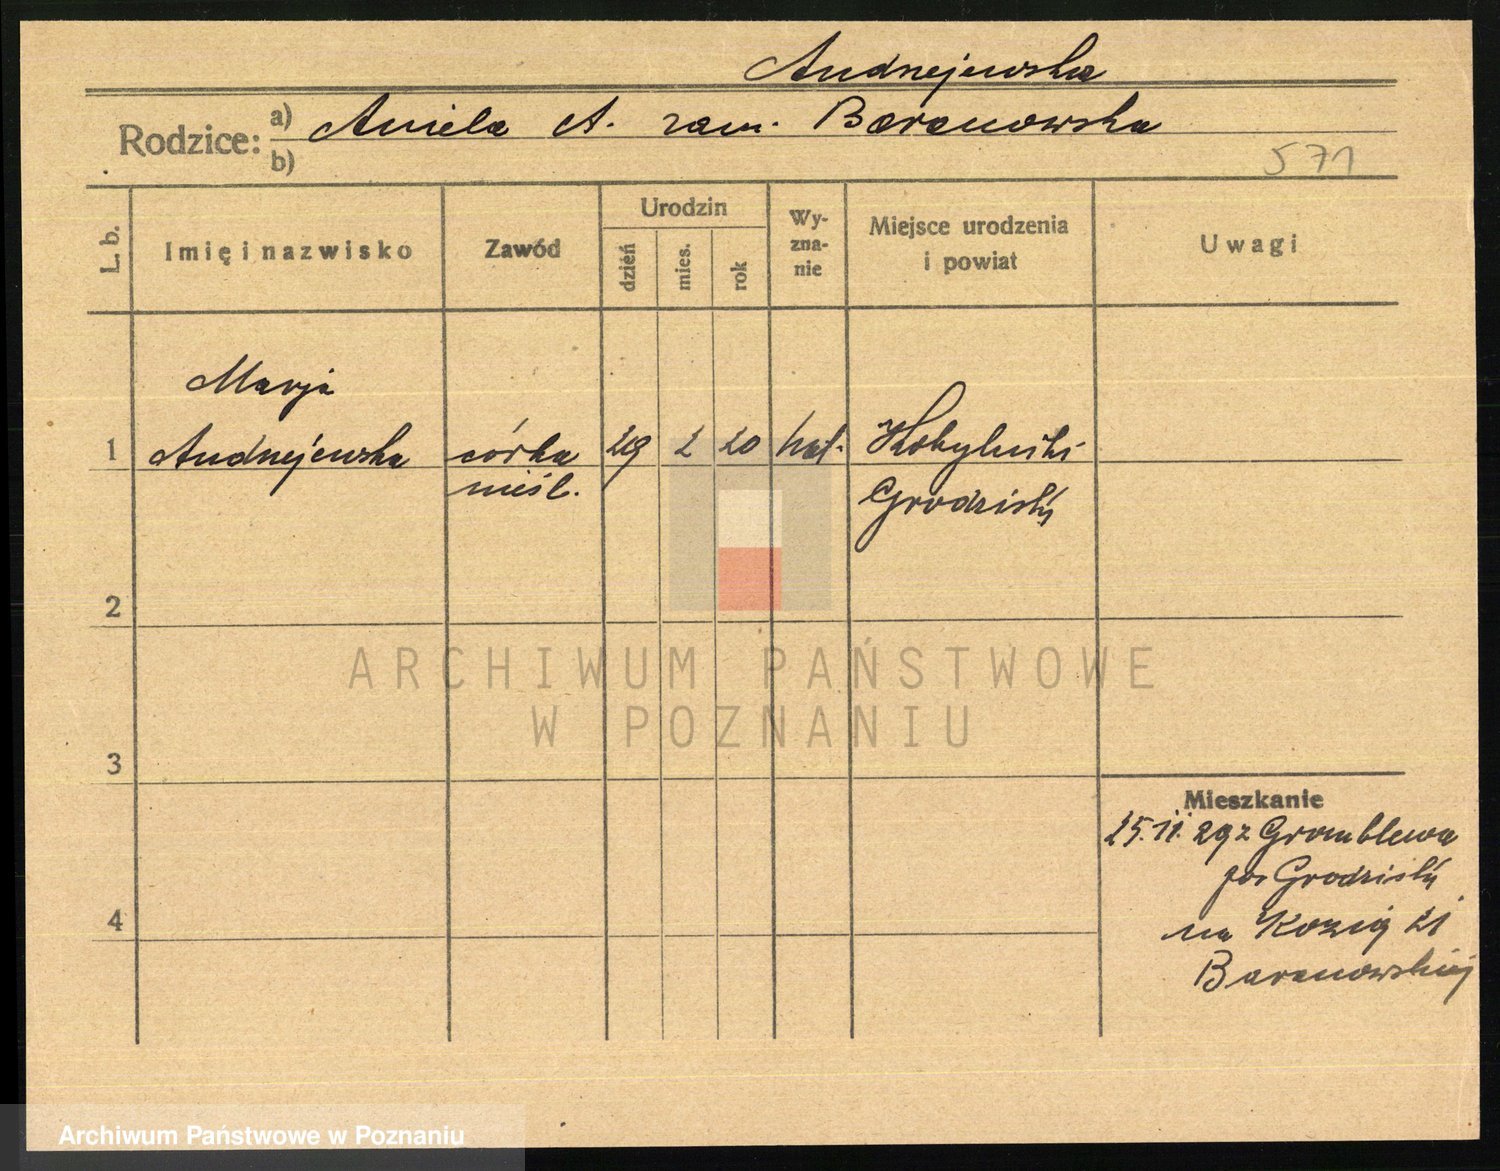 Andrzejewska
Rodzice: a) Aniela A. zam. Baranowska
b)
571
L. b.
Imię i nazwisko
Zawód
Urodzin
dzień
mies.
rok
Wy-
zna-
nie
Miejsce urodzenia
i powiat
Uwagi
Marja
1 Andrzejewska córka 29 2 20 kat. Kobylniki
nieśl. Grodzisk
2
ARCHIWUM PAŃSTWOWE
W POZNANIU
3
Mieszkanie
25.11.29 z Gromblewa
Grodzisk
4
na 21
Baranowskiej
Archiwum Państwowe w Poznaniu